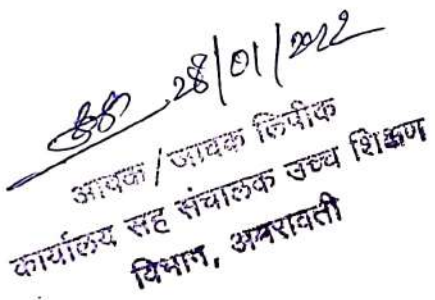 28/01/2022
आवक / जावक लिपीक
कार्यालय सह संचालक उच्च शिक्षण
विभाग, अमरावती